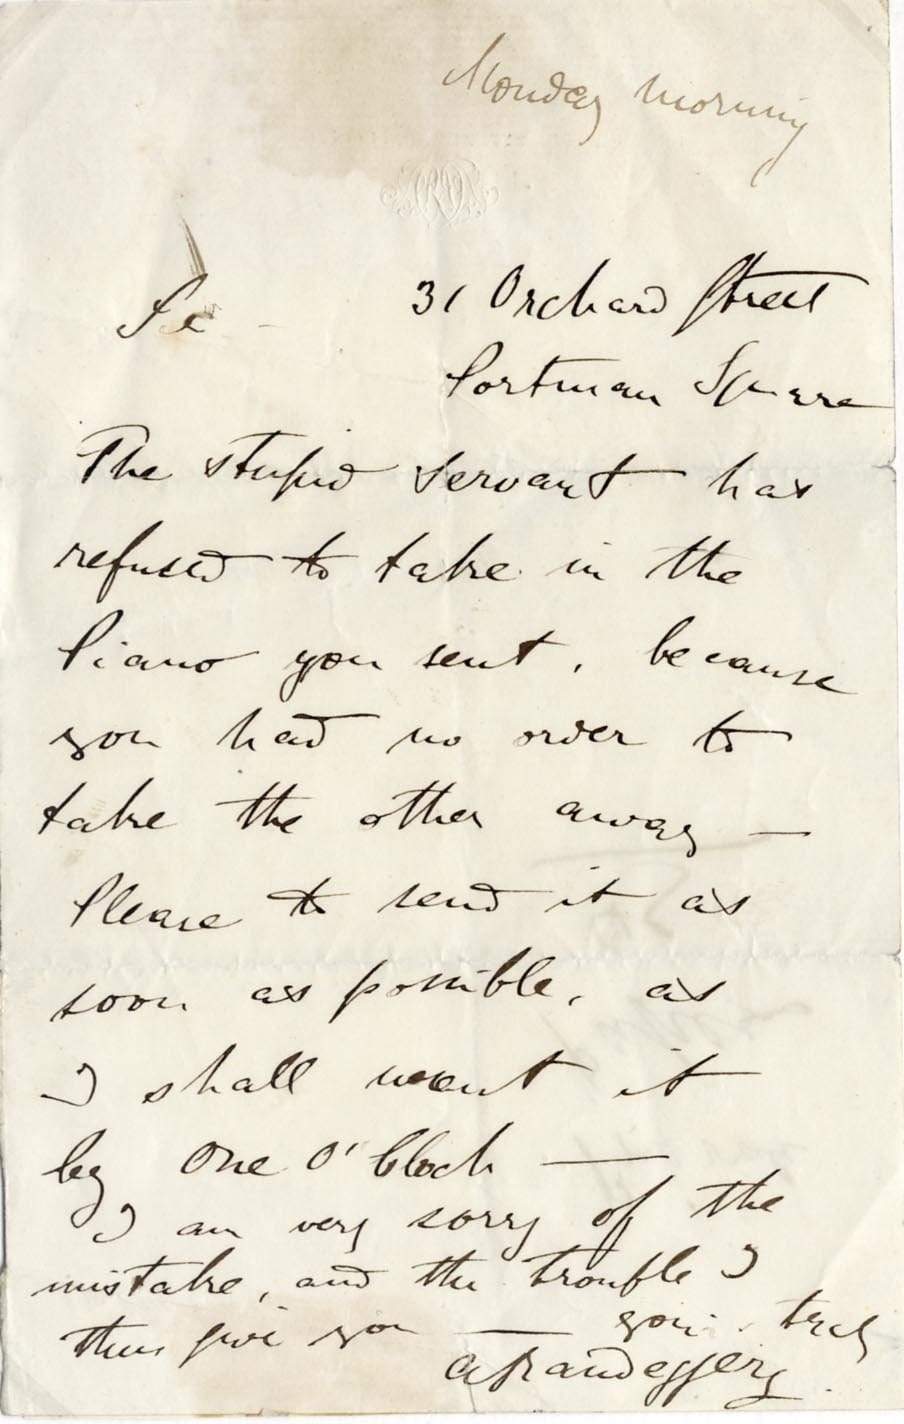 Monday morning
31 Orchard Street
Portman Square
The stupid servant has
refused to take in the
Piano you sent, because
you had no order to
take the other away —
Please to send it as
soon as possible, as
I shall want it
by One O'Clock —
I am very sorry of the
mistake, and the trouble I
thus give you —
yours truly
A Randegger